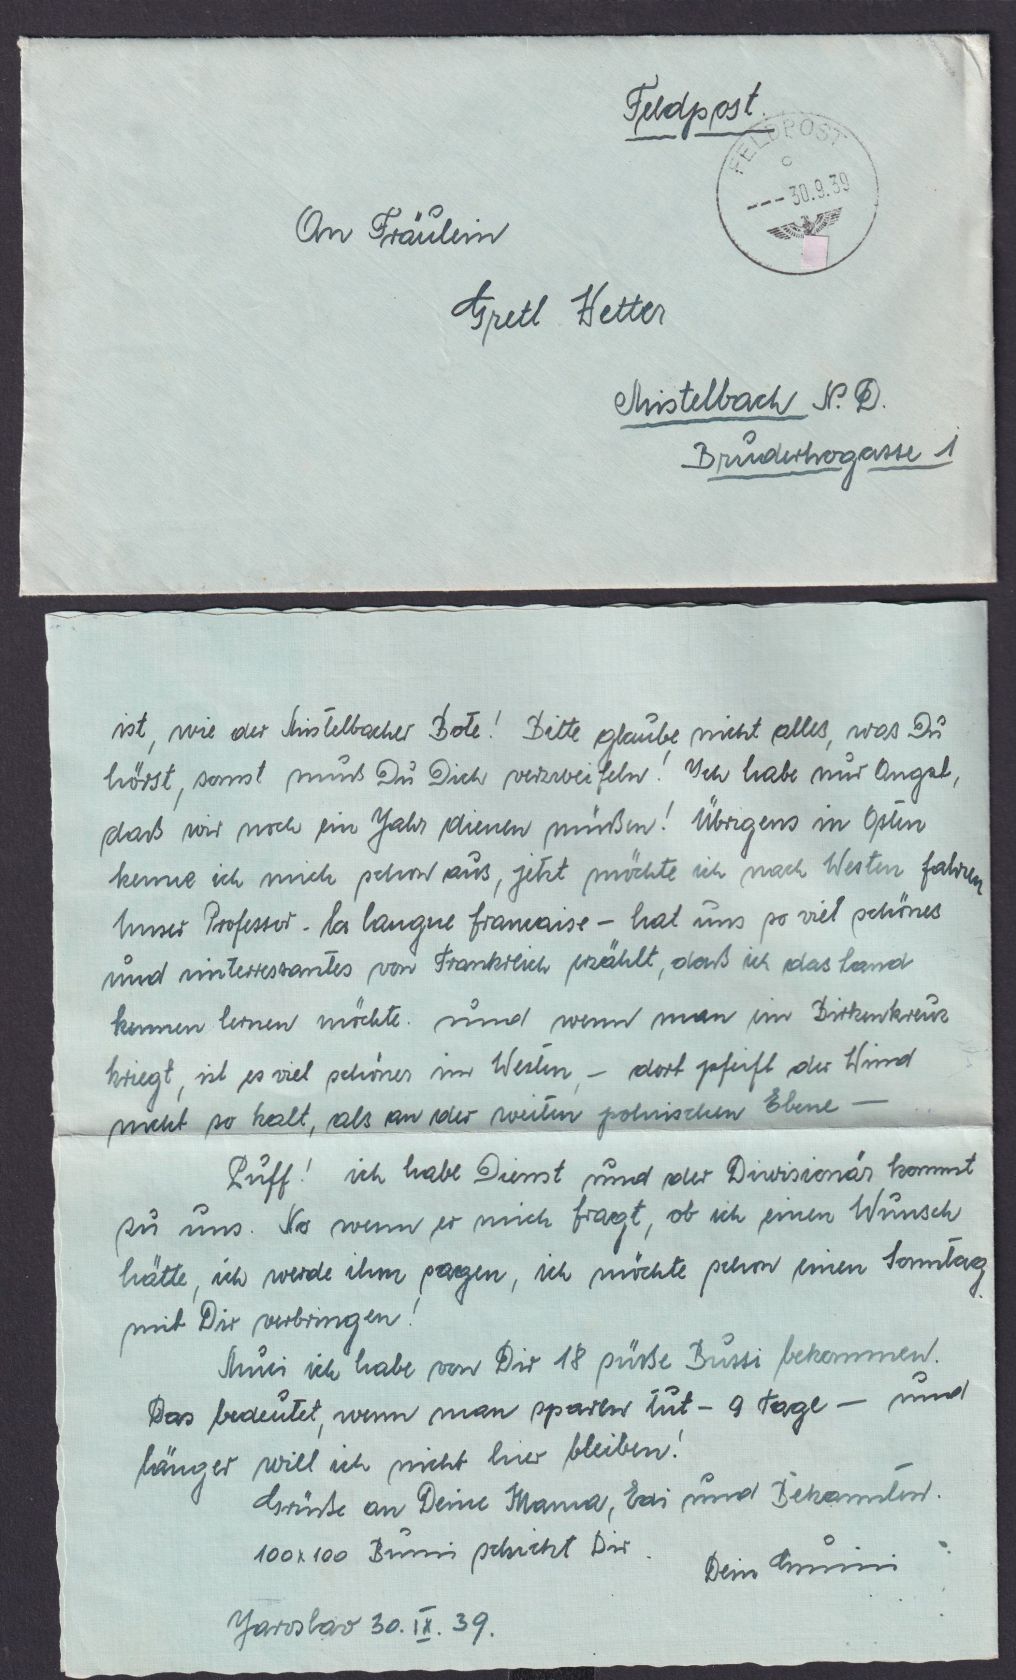 Feldpost
FELDPOST
c
--- 30.9.39
An Fräulein
Gretl Vetter
Mistelbach N. D.
Bruderhofgasse 1
ist, wie der Mistelbacher Bote! Bitte glaube nicht alles, was Du
hörst, sonst mußt Du Dich verzweifeln! Ich habe nur Angst,
daß wir noch ein Jahr dienen müßen! Übrigens in Osten
kenne ich mich schon aus, jetzt möchte ich nach Westen fahren
Unser Professor - la langue francaise - hat uns so viel schönes
und interressantes von Frankreich erzählt, daß ich das Land
kennen lernen möchte. und wenn man ein Birkenkreuz
kriegt, ist es viel schöner im Westen, - dort pfeift der Wind
nicht so kalt, als an der weiten polnischen Ebene -
Puff! ich habe Dienst und der Diwisionär kommt
zu uns. No wenn er mich fragt, ob ich einen Wunsch
hätte, ich werde ihm sagen, ich möchte schon einen Sonntag
mit Dir verbringen!
ich habe von Dir 18 süße Bussi bekommen.
Das bedeutet, wenn man sparen tut - 9 Tage - und
länger will ich nicht hier bleiben!
Grüße an Deine Mama, Edi und Bekannten.
100x100 Bussi schickt Dir.
Dein
Jaroslav 30. IX. 39.